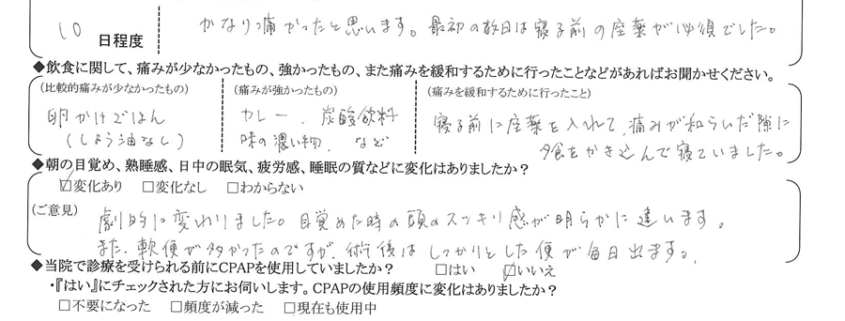 10 日程度
かなり痛かったと思います。最初の数日は寝る前の座薬が必須でした。
◆飲食に関して、痛みが少なかったもの、強かったもの、また痛みを緩和するために行ったことなどがあればお聞かせください。
(比較的痛みが少なかったもの)
卵かけごはん
(しょう油なし)
(痛みが強かったもの)
カレー、炭酸飲料
味の濃い物、など
(痛みを緩和するために行ったこと)
寝る前に座薬を入れて、痛みが和らいだ隙に
夕食をかき込んで寝ていました。
◆朝の目覚め、熟睡感、日中の眠気、疲労感、睡眠の質などに変化はありましたか?
☑変化あり □変化なし □わからない
(ご意見)
劇的に変わりました。目覚めた時の頭のスッキリ感が明らかに違います。
また、軟便が多かったのですが、術後はしっかりとした便が毎日出ます。
◆当院で診療を受けられる前にCPAPを使用していましたか? □はい ☑いいえ
・『はい』にチェックされた方にお伺いします。CPAPの使用頻度に変化はありましたか?
□不要になった □頻度が減った □現在も使用中